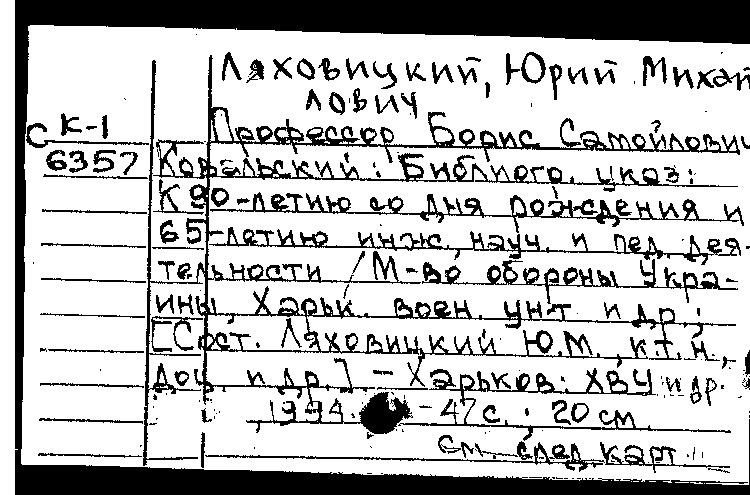 Ляховицкий, Юрий Михай
лович
С К-1
6357
Профессор Борис Самойлович
Ковальский: Библиогр. указ:
К 90-летию со дня рождения и
65-летию инж., науч. и пед. дея-
тельности / М-во обороны Укра-
ины, Харьк. воен. ун-т и др.;
[Сост. Ляховицкий Ю.М., к.т.н.,
доц. и др.]. - Харьков: ХВУ и др.
, 1994. - 47 с.; 20 см.
см. след. карт.